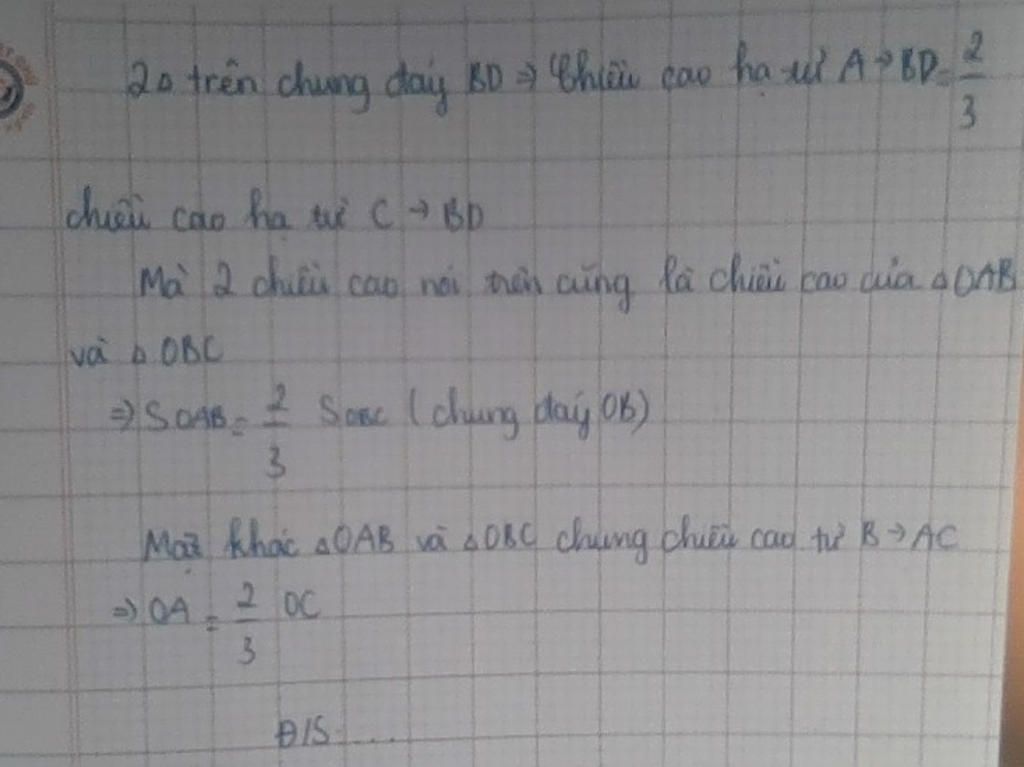 2△ trên chung đáy BD ⇒ Chiều cao hạ từ A → BD = 2/3
chiều cao hạ từ C → BD
Mà 2 chiều cao nói trên cũng là chiều cao của △OAB
và △OBC
⇒ SOAB = 2/3 SOBC (chung đáy OB)
Mặt khác △OAB và △OBC chung chiều cao từ B → AC
⇒ OA = 2/3 OC
Đ/S....